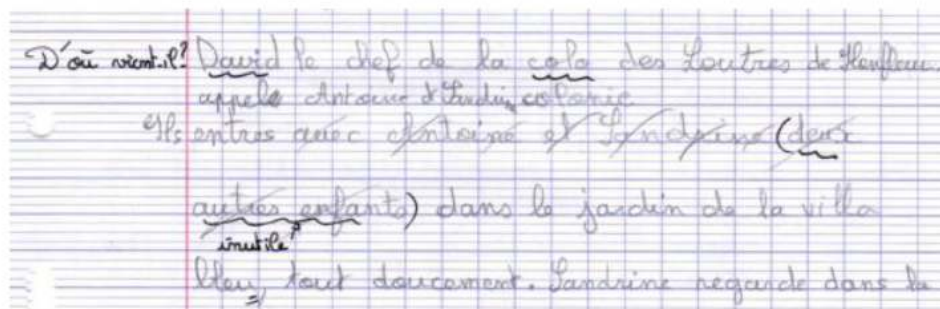 D'où vient-il? David le chef de la colo des Loutres de Honfleur.
appele Antoine et Sandrine colonie
Ils entres avec Antoine et Sandrine (deux
autres enfants) dans le jardin de la villa
inutile
bleu, tout doucement. Sandrine regarde dans la